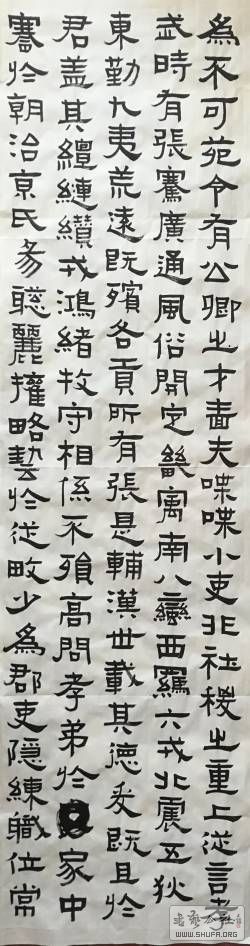 為不可苑令有公卿之才嗇夫喋喋小吏非社稷之重上從言孝
武時有張騫廣通風俗開定畿寓南八蠻西羈六戎北震五狄
東勤九夷荒遠既殯各貢所有張是輔漢世載其德爰既且於
君蓋其繵縺纘戎鴻緒牧守相係不殞高問孝弟於家中
謇於朝治京氏易聰麗權略藝於從畋少為郡吏隱練職位常
WWW.SHUFA.ORG